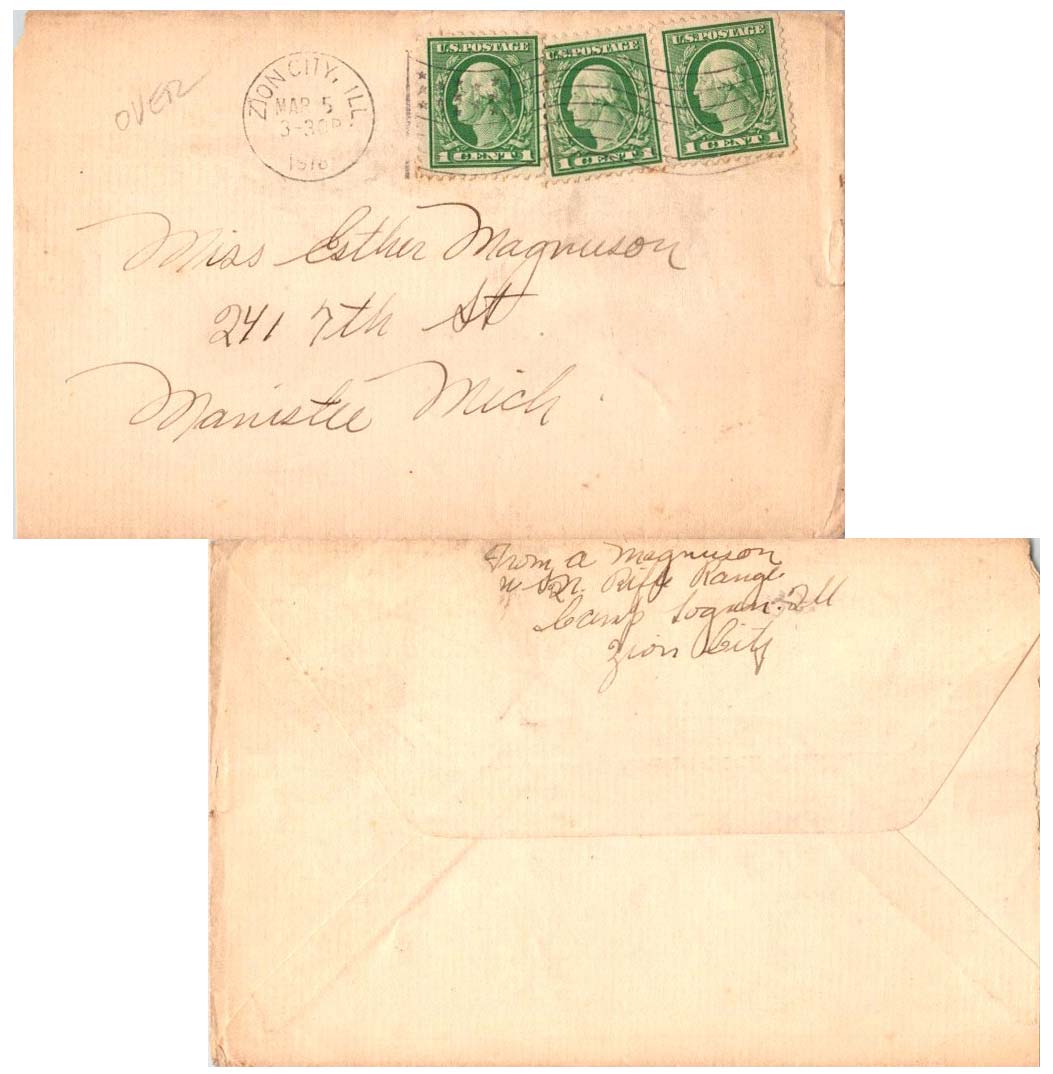 OVER
ZION CITY, ILL.
MAR 5
3-30P
1918
U.S.POSTAGE
1 CENT 1
U.S.POSTAGE
1 CENT 1
U.S.POSTAGE
1 CENT 1
Miss Esther Magnuson
241 7th St.
Manistee Mich.
From A Magnuson
U.S.N. Rifle Range
Camp Logan. Ill
Zion City